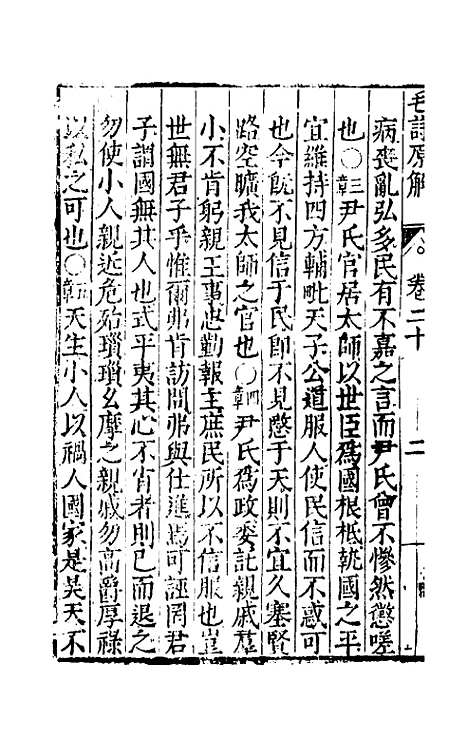 毛詩原解 卷二十 二
病喪亂弘多民有不嘉之言而尹氏曾不慘然懲嗟
也○三章尹氏官居太師以世臣為國根柢執國之平
宜維持四方輔毗天子公道服人使民信而不惑可
也今既不見信于民即不見愍于天則不宜久塞賢
路空曠我太師之官也○四章尹氏為政委託親戚羣
小不肯躬親王事忠勤報主庶民所以不信服也豈
世無君子乎惟爾弗肯訪問弗與仕進焉可誣罔君
子謂國無其人也式平夷其心不肯者則已而退之
勿使小人親近危殆瑣瑣幺摩之親戚勿高爵厚祿
以私之可也○五章天生小人以禍人國家是昊天不